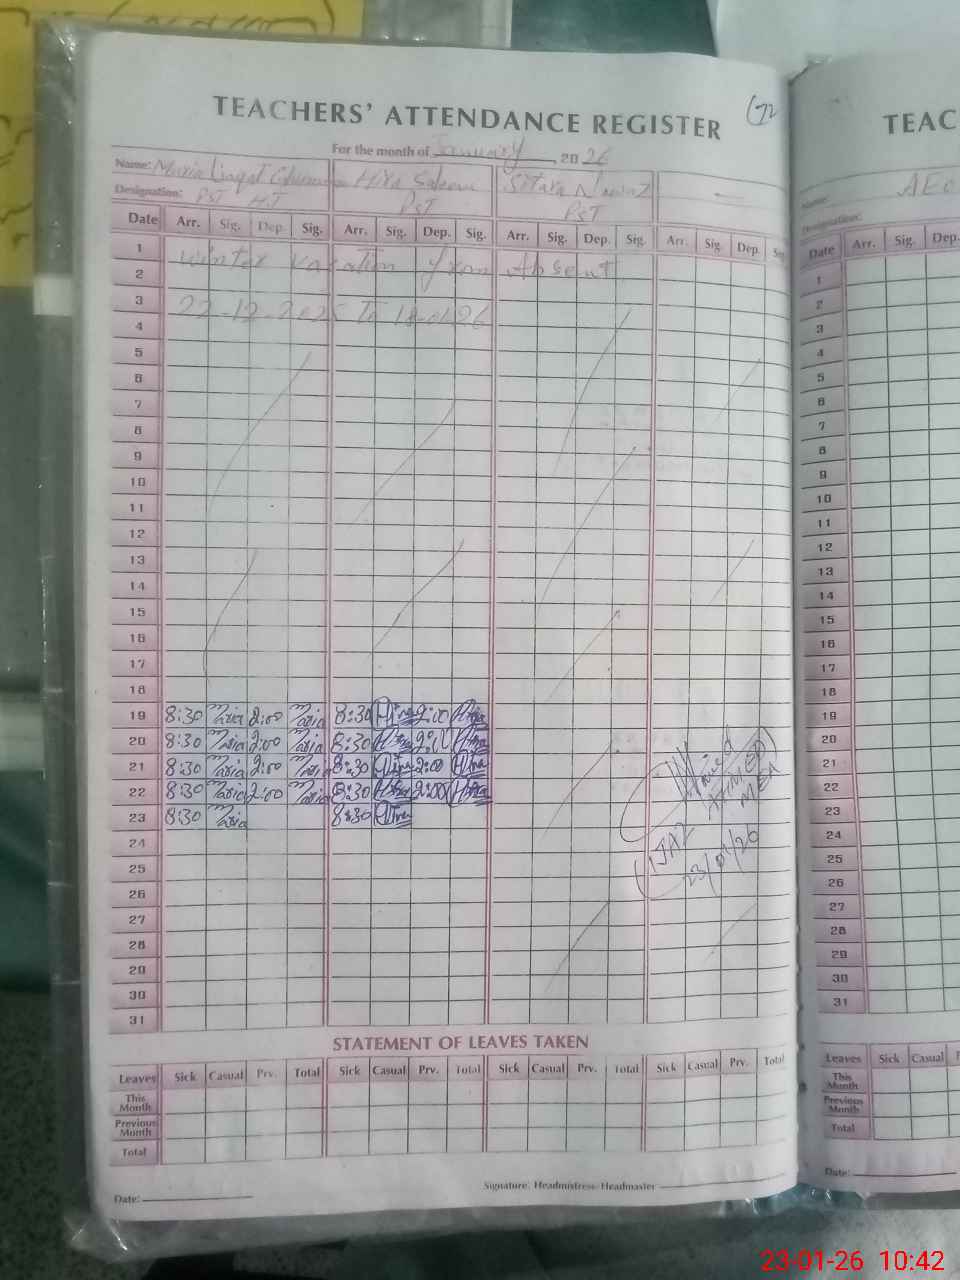 (72
TEACHERS' ATTENDANCE REGISTER
For the month of January, 20 26
Name: Maria Liaqat Hira Saleem Sitara Nawaz
Designation: PST H.T PST PST
Date Arr. Sig. Dep. Sig. Arr. Sig. Dep. Sig. Arr. Sig. Dep. Sig. Arr. Sig. Dep.
1 winter vacation from Absent
2
3 22-12-2025 To 18-01-26
4
5
6
7
8
9
10
11
12
13
14
15
16
17
18
19 8:30 Maria 2:00 Maria 8:30 Hira 2:00 Hira
20 8:30 Maria 2:00 Maria 8:30 Hira 2:00 Hira
21 8:30 Maria 2:00 Maria 8:30 Hira 2:00 Hira
22 8:30 Maria 2:00 Maria 8:30 Hira 2:00 Hira
23 8:30 Maria 8:30 Hira
24
25
26
27
28
29
30
31
(IJAZ AHMED)
MEA
23/01/26
STATEMENT OF LEAVES TAKEN
Leaves Sick Casual Prv. Total Sick Casual Prv. Total Sick Casual Prv. Total Sick Casual Prv. Total
This Month
Previous Month
Total
Signature: Headmistress/Headmaster
Date:
TEAC
Name: AEO
Designation:
Date Arr. Sig. Dep.
1
2
3
4
5
6
7
8
9
10
11
12
13
14
15
16
17
18
19
20
21
22
23
24
25
26
27
28
29
30
31
Leaves Sick Casual
This Month
Previous Month
Total
Date:
23-01-26 10:42